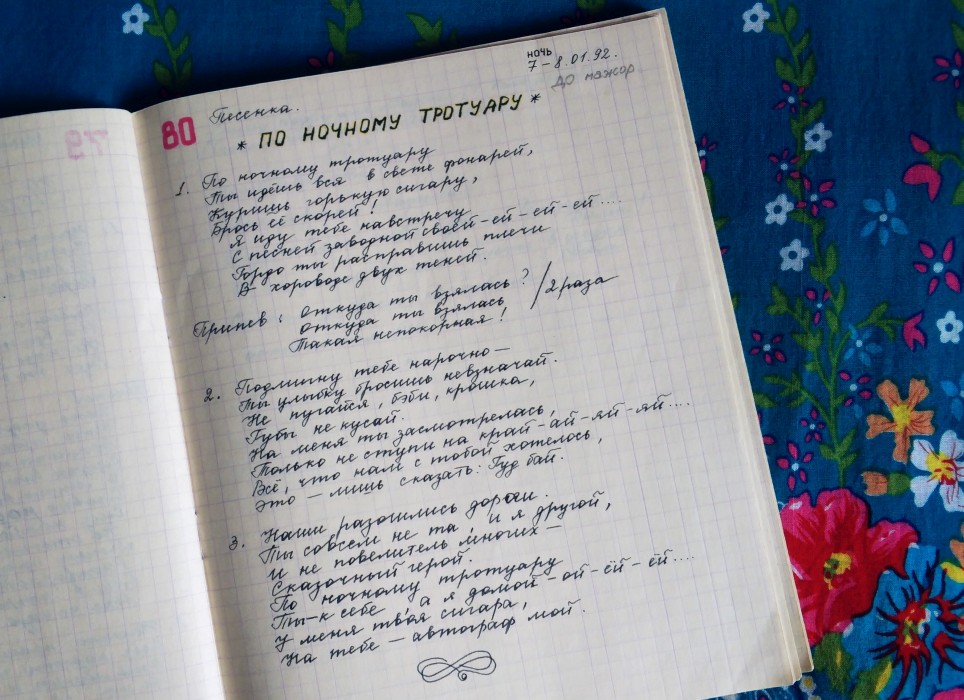 ночь
7–8.01.92.
ДО мажор
Песенка.
80
* ПО НОЧНОМУ ТРОТУАРУ *
1. По ночному тротуару
Ты идёшь вся в свете фонарей,
Куришь горькую сигару,
Брось её скорей!
Я иду тебе навстречу
С песней заводной своей-ей-ей-ей....
Гордо ты расправишь плечи
В хороводе двух теней.
Припев: Откуда ты взялась? / 2 раза
Откуда ты взялась
Такая непокорная!
2. Подмигну тебе нарочно—
Ты улыбку бросишь невзначай.
Не пугайся, бэби, крошка,
Губы не кусай.
На меня ты засмотрелась,
Только не ступи на край-ай-яй-яй....
Всё, что нам с тобой хотелось,
Это — лишь сказать: Гуд бай.
3. Наши разошлись дороги.
Ты совсем не та, и я другой,
И не повелитель многих—
Сказочный герой.
По ночному тротуару
Ты-к себе, а я домой-ой-ёй-ёй....
У меня твоя сигара,
На тебе — автограф мой.
79